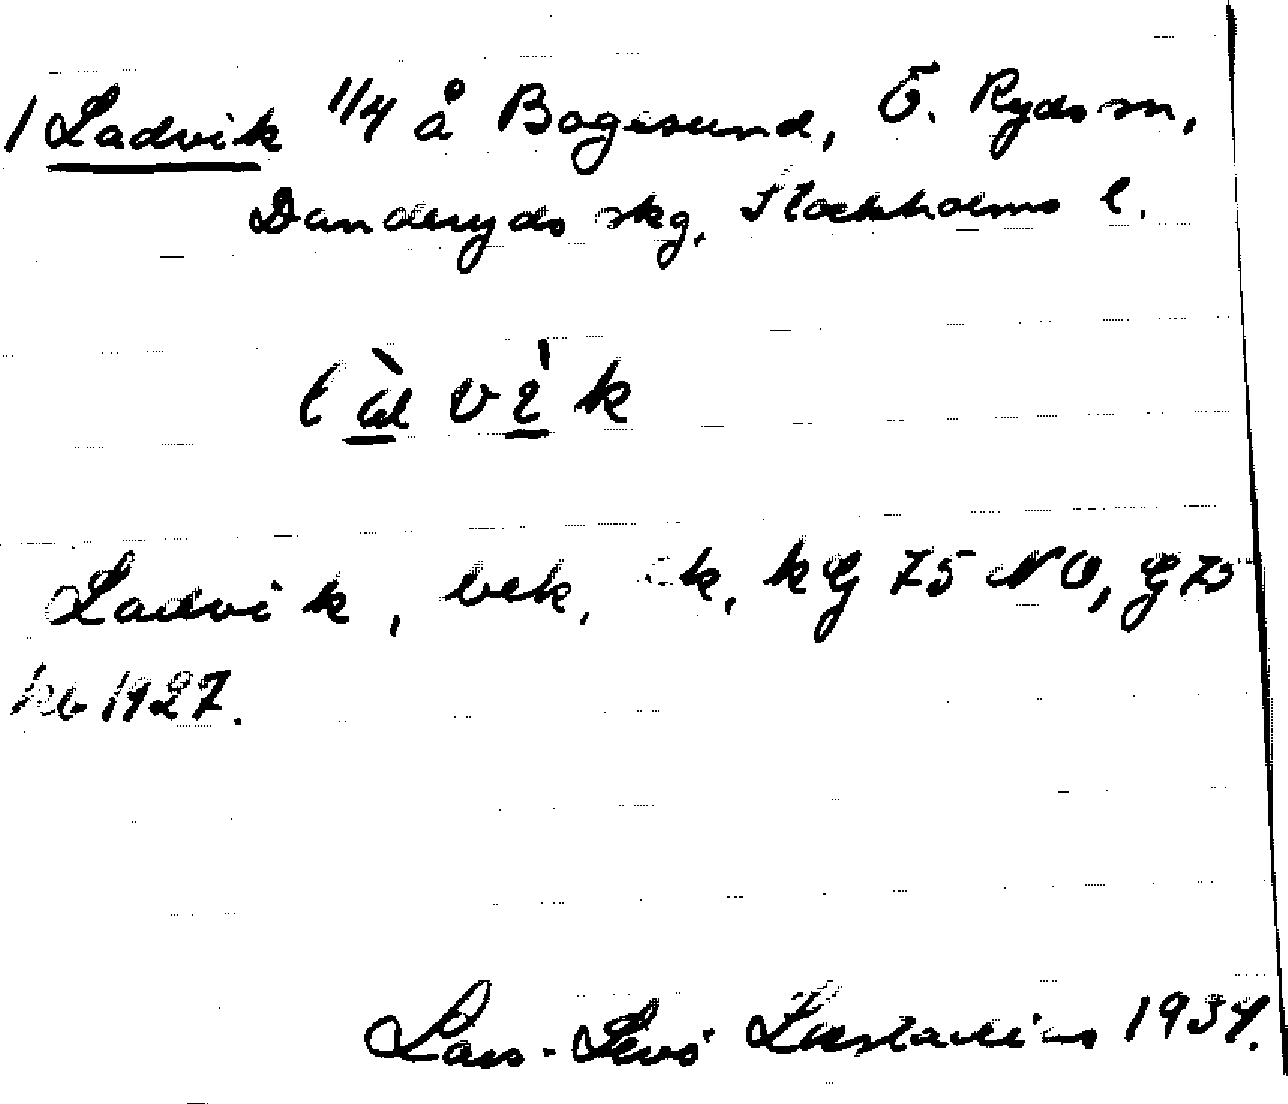 1 Ladvik 1/4 å Bogesund, Ö. Ryds sn,
Danderyds skg, Stockholms l.
làvìk
Ladvik, bek, ek, kG 75 NO, G75
kb 1927.
Lars-Levi Læstadius 1934.